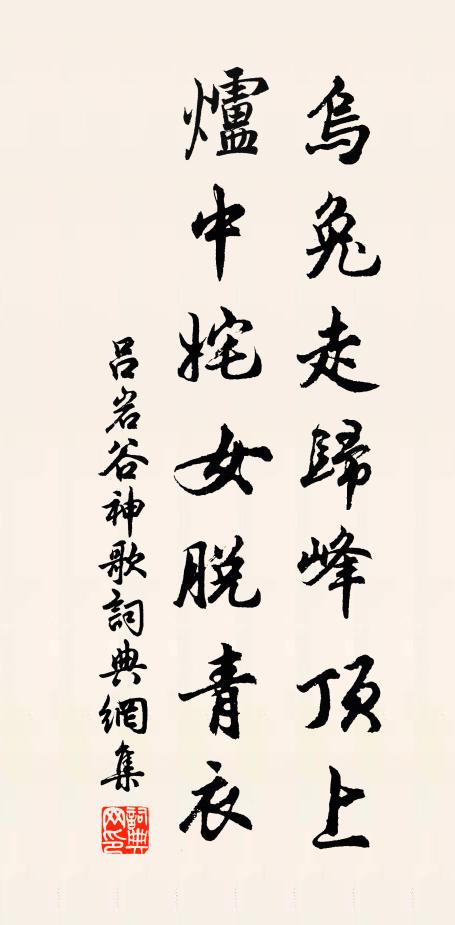 烏兔走歸峰頂上
爐中姹女脫青衣
呂岩谷神歌詞典網集
詞典網印